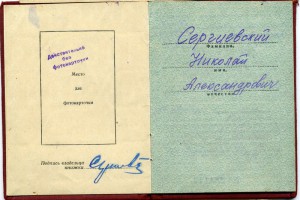 Действителен
без
фотокарточки
Место
для
фотокарточки
Подпись владельца
книжки
Сергиевский
Фамилия,
Николай
имя,
Александрович
отчество